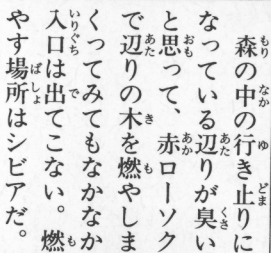 森の中の行き止りに
なっている辺りが臭い
と思って、赤ローソク
で辺りの木を燃やしま
くってみてもなかなか
入口は出てこない。燃
やす場所はシビアだ。